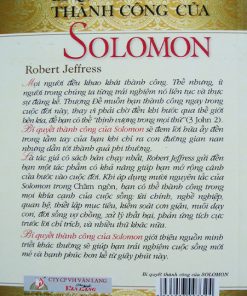 THÀNH CÔNG CỦA
SOLOMON
Robert Jeffress
Mọi người đều khao khát thành công. Thế nhưng, ít
người trong chúng ta từng trải nghiệm nó liên tục và thực
sự đáng kể. Thượng Đế muốn bạn thành công ngay trong
cuộc đời này, thay vì phải chờ đến khi bước qua thế giới
bên kia, để bạn có thể "thịnh vượng trong mọi thứ" (3 John 2).
Bí quyết thành công của Solomon sẽ đem lời hứa ấy đến
trong tầm tay của bạn khi chỉ ra con đường gian nan
nhưng dẫn tới thành quả phi thường.
Là tác giả có sách bán chạy nhất, Robert Jeffress gửi đến
bạn một tác phẩm có khả năng giúp bạn mở rộng cánh
cửa bước vào cuộc đời. Khi áp dụng mười nguyên tắc của
Solomon trong Châm ngôn, bạn có thể thành công trong
mọi khía cạnh của cuộc sống như tài chính, nghề nghiệp,
quan hệ, thiết lập mục tiêu, kiểm soát cơn giận, nuôi dạy
con, đời sống vợ chồng, xử lý thất bại, phản ứng tích cực
trước lời chỉ trích, và nhiều thứ khác nữa.
Bí quyết thành công của Solomon giới thiệu nguồn minh
triết khác thường sẽ giúp bạn trải nghiệm cuộc sống mới
mẻ cả hạnh phúc hơn kể từ giây phút này.
CTY CP VH VĂN LANG
VĂN LANG
Bí quyết thành công của SOLOMON